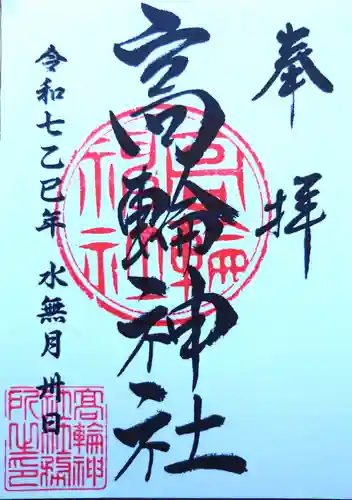 奉拝
高輪神社
令和七乙巳年 水無月 卅日
高輪神
社社務
所之印